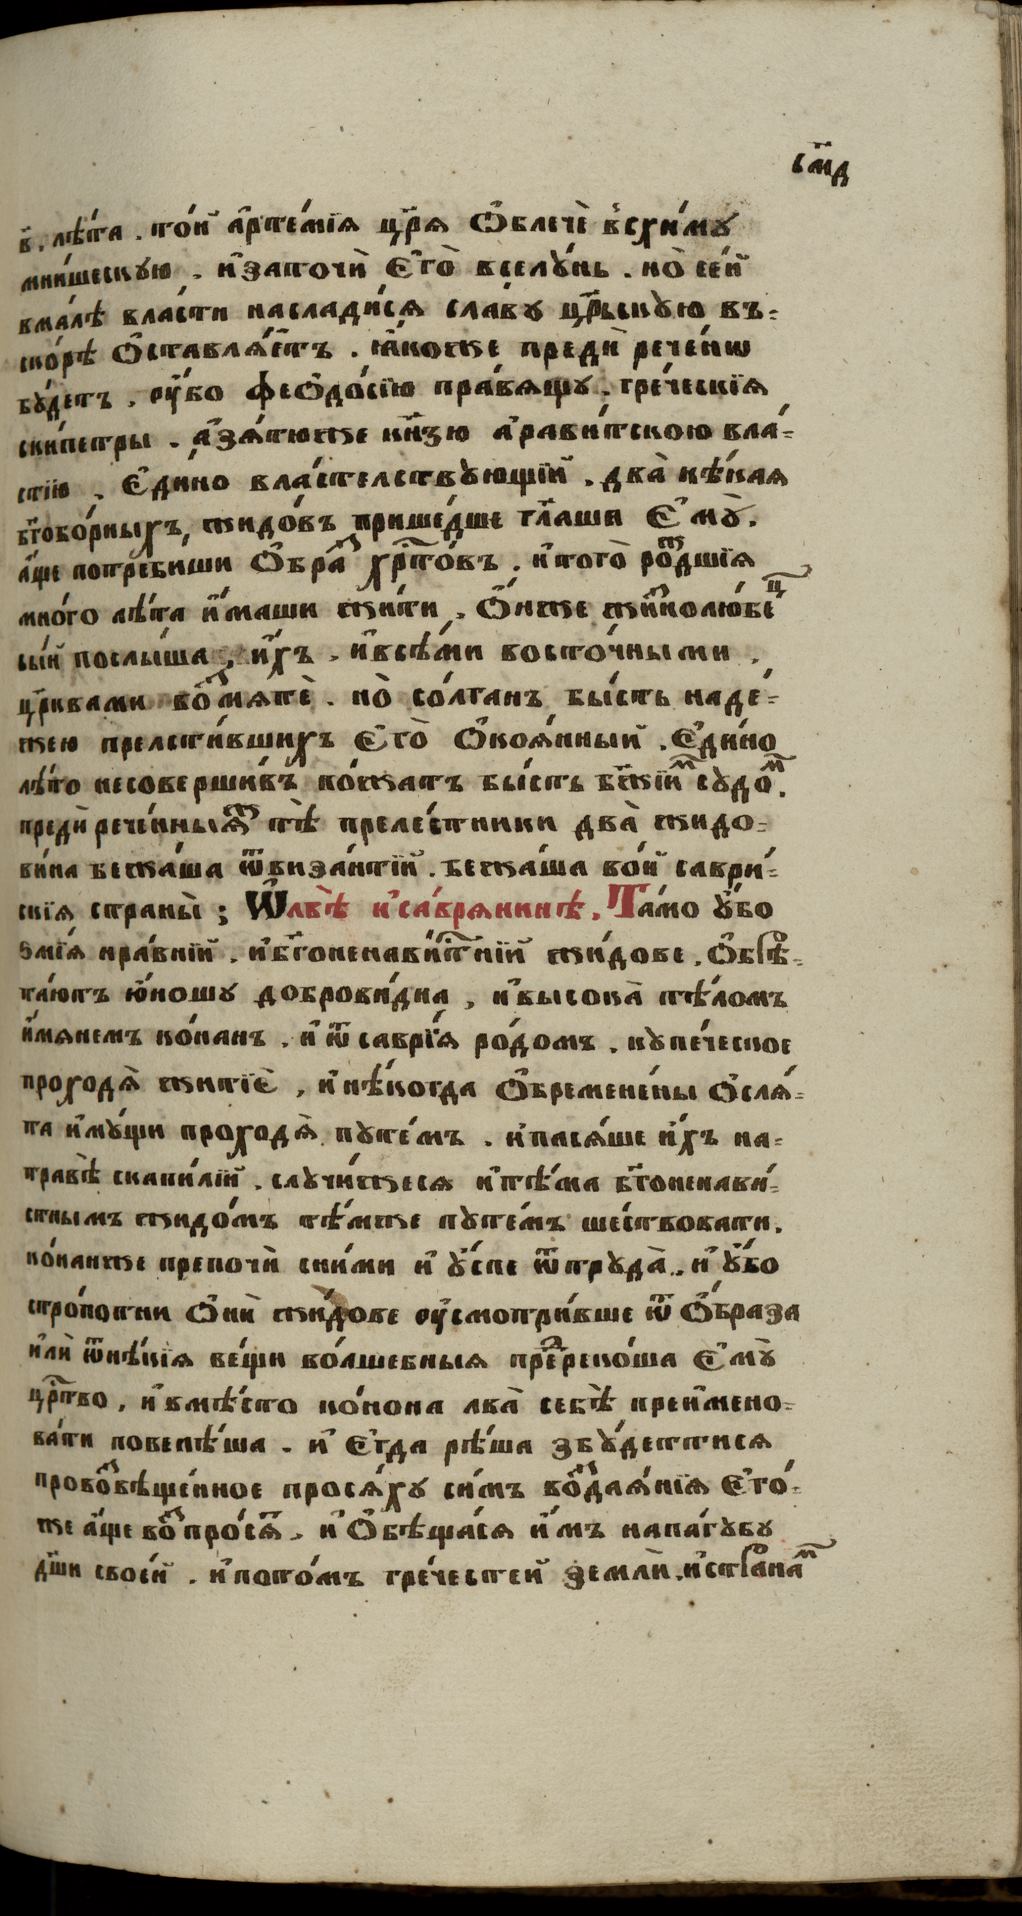 см҃д
в҃. лѣ́та. то́й а҆рте́мїѧ цр҃ѧ ѻ҆блечѐ в̾схи́мꙋ
мни́шескꙋю, и҆заточѝ є҆го̀ вселꙋ́нь. но̀ се́й
вма́лѣ вла́сти наслади́сѧ сла́вꙋ цр҃ьскꙋю въ-
ско́рѣ ѡ҆ставлѧ́етъ. ꙗ҆́коже предѝ рече́нѡ
бꙋ́детъ. ᲂу҆́бо феѻдо́сїю пра́вѧщꙋ. гре́ческїѧ
ски́петры. а҆зѧ́тюже кнѧ҃зю а҆рави́тскою вла́-
стїю, є҆ди́но вла́стелствꙋющїй. два̀ нѣ́каѧ
бг҃обо́рныхъ, жидо́въ прише́дше гл҃аши є҆мꙋ̀.
а҆́ще потреби́ши ѻ҆́браꙁ хрⷭ҇то́въ. и҆того̀ ро́ждшїѧ
мно́го лѣ́та и҆́маши жи́ти, ѻ҆́нже жи҆знолю́бець
сы́й послы́ша, и҆́хъ. и҆всѣ́ми восто́чными.
цр҃квами воꙁмѧтѐ. но̀ со́лтанъ бы́сть наде́-
жею прелсти́вшихъ є҆го̀ ѻ҆коѧ́нный. є҆ди́но
лѣ́то несоверши́въ ко́жатъ бы́сть бж҃їимъ сꙋдо́мъ.
предѝ рече́нныѧ же тѣ̀ преле́стники два̀ жидо-
ви́на бежа́ша ѿвиза́нтїй. бежа́ша во́й саври́-
скїѧ страны̀; Ѡ҆лвѣ̀ и҆са́врѧнинѣ. Та́мо ᲂу҆́бо
ѕмїѧ нра́внїй. и҆бг҃оненави́стнїй жи́дове, ѻ҆брѣ-
та́ютъ ю҆́ношꙋ доброви́дна, и҆высока̀ тѣ́ломъ
и҆́мѧнемъ ко́нанъ. и҆ ѿ саврі́ѧ ро́домъ. кꙋпе́ческое
проходѧ̀ житїѐ, и҆нѣ́когда ѻ҆бремене́ны ѻ҆слѧ́-
та и҆мꙋ́щи проходѧ̀ пꙋте́мъ. и҆пасѧ́ше и҆́хъ на-
травѣ̀ скапи́лїй. слꙋчи́жесѧ и҆тѣ́ма бг҃оненави́-
стнымъ жидо́мъ тѣ́мже пꙋте́мъ ше́ствовати.
ко́нанже препочѝ сни́ми и҆ ᲂу҆́спе ѿтрꙋда̀. и҆ ᲂу҆́бо
стро́потни ѻ҆нѝ жи́дове ᲂу҆смотри́вше ѿ ѻ҆́браза
и҆лѝ ѿнѣ́кїѧ ве́щи во́лшебныѧ пре́дреко́ша є҆мꙋ̀
црⷭ҇тво, и҆вмѣ́сто ко́нона лва̀ себѣ̀ преи҆мено-
ва́ти повелѣ́ша. и҆ є҆гда̀ рѣ́ша збꙋ́деттисѧ
провоꙁвѣще́нное просѧ́хꙋ си́мъ воꙁдаѧ́нїѧ є҆го́-
же а҆́ще воспро́сѧтъ. и҆ ѻ҆бѣща́сѧ и҆́мъ напа́гꙋбꙋ
дш҃и свое́й. и҆пото́мъ гре́честей земли̂. и҆страна́мъ